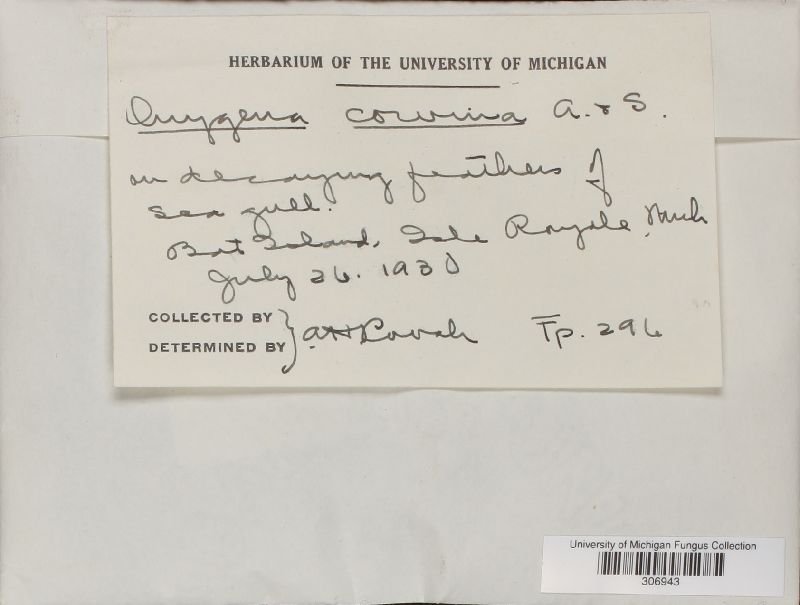 HERBARIUM OF THE UNIVERSITY OF MICHIGAN
Onygena corvina A. & S.
on decaying feathers of
sea gull.
Bat Island, Isle Royale, Mich
July 26. 1930
COLLECTED BY
DETERMINED BY
A H Povah Fp. 296
University of Michigan Fungus Collection
306943